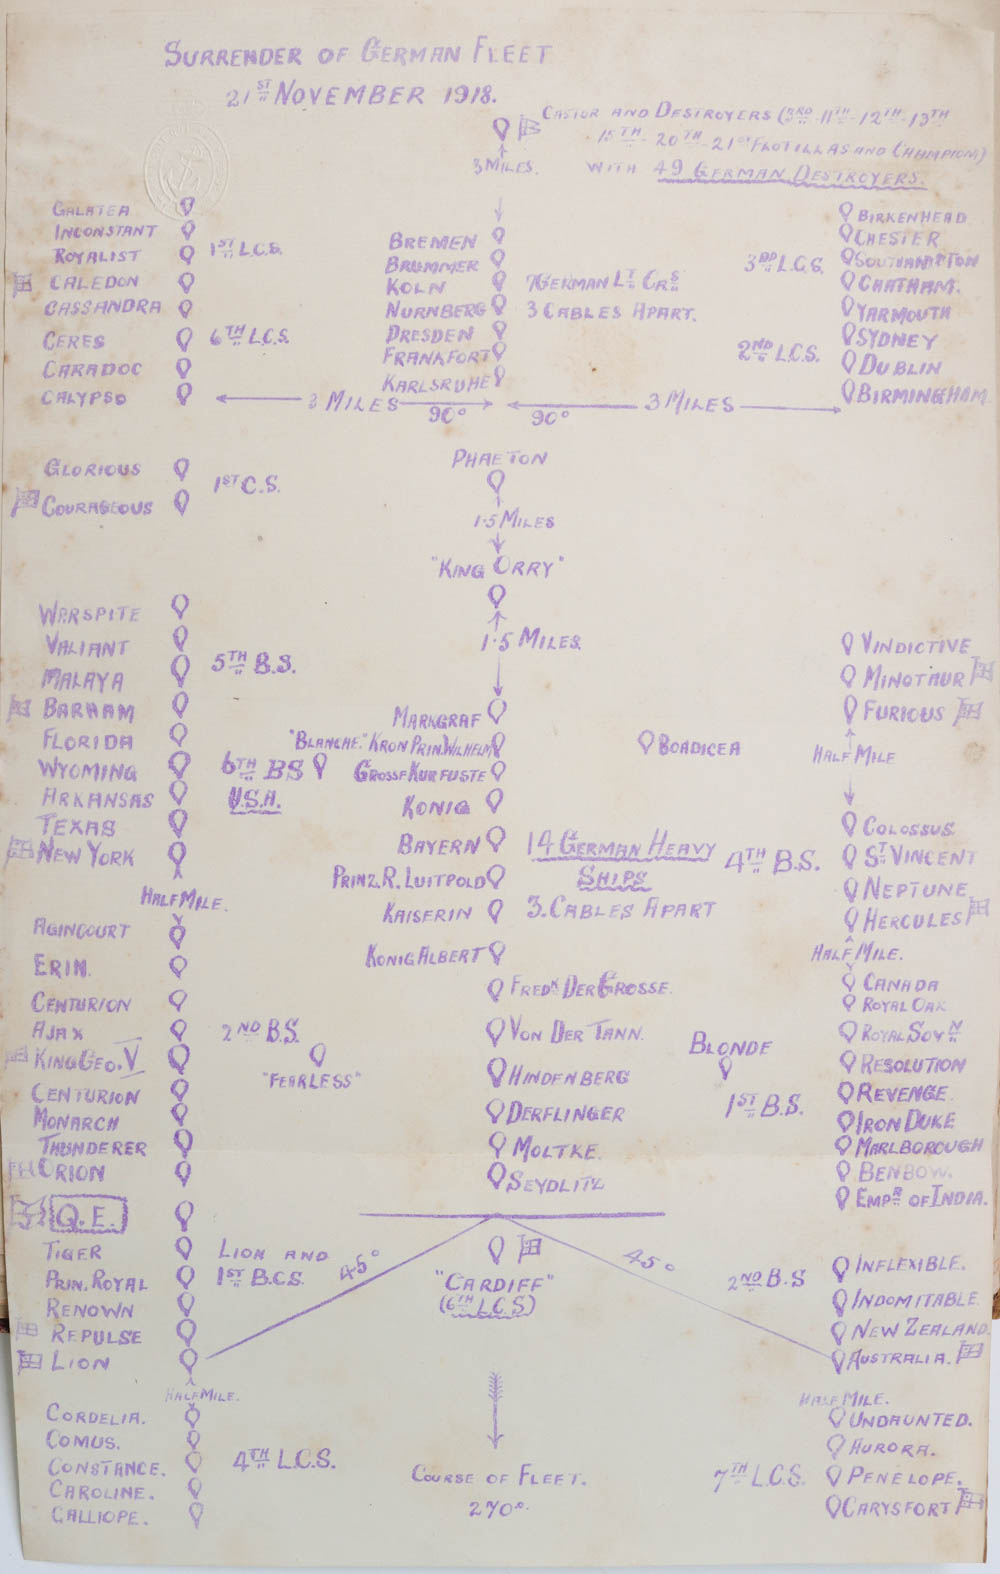 SURRENDER OF GERMAN FLEET
21ST NOVEMBER 1918.
CASTOR AND DESTROYERS (3RD-11TH-12TH-13TH
15TH-20TH-21ST FLOTILLAS AND CHAMPION)
WITH 49 GERMAN DESTROYERS.
3 MILES.
GALATEA
INCONSTANT
ROYALIST
CALEDON
CASSANDRA
CERES
CARADOC
CALYPSO
1ST L.C.S.
6TH L.C.S.
BREMEN
BRUMMER
KOLN
NURNBERG
DRESDEN
FRANKFORT
KARLSRUHE
7 GERMAN LT CRS
3 CABLES APART.
BIRKENHEAD
CHESTER
SOUTHAMPTON
CHATHAM.
YARMOUTH
SYDNEY
DUBLIN
BIRMINGHAM.
3RD L.C.S.
2ND L.C.S.
3 MILES
90°
3 MILES
90°
GLORIOUS
COURAGEOUS
1ST C.S.
PHAETON
1·5 MILES
"KING ORRY"
1·5 MILES.
WARSPITE
VALIANT
MALAYA
BARHAM
FLORIDA
WYOMING
ARKANSAS
TEXAS
NEW YORK
5TH B.S.
6TH BS
U.S.A.
HALF MILE.
AGINCOURT
ERIN.
CENTURION
AJAX
KING GEO. V
CENTURION
MONARCH
THUNDERER
ORION
2ND B.S.
"FEARLESS"
Q.E.
TIGER
PRIN. ROYAL
RENOWN
REPULSE
LION
LION AND
1ST B.C.S.
HALF MILE.
CORDELIA.
COMUS.
CONSTANCE.
CAROLINE.
CALLIOPE.
4TH L.C.S.
MARKGRAF
"BLANCHE." KRON PRIN. WILHELM
GROSSE KURFUSTE
KONIG
BAYERN
PRINZ. R. LUITPOLD
KAISERIN
KONIG ALBERT
FREDK DER GROSSE.
VON DER TANN.
HINDENBERG
DERFLINGER
MOLTKE.
SEYDLITZ
14 GERMAN HEAVY
SHIPS
3. CABLES APART
BOADICEA
BLONDE
VINDICTIVE
MINOTAUR
FURIOUS
HALF MILE
COLOSSUS
ST VINCENT
NEPTUNE
HERCULES
4TH B.S.
HALF MILE.
CANADA
ROYAL OAK
ROYAL SOVN
RESOLUTION
REVENGE.
IRON DUKE
MARLBOROUGH
BENBOW.
EMPR OF INDIA.
1ST B.S.
45°
45°
"CARDIFF"
(6TH L.C.S)
INFLEXIBLE.
INDOMITABLE.
NEW ZEALAND.
AUSTRALIA.
2ND B.S
HALF MILE.
UNDAUNTED.
AURORA.
PENELOPE.
CARYSFORT
7TH L.C.S.
COURSE OF FLEET.
270°.